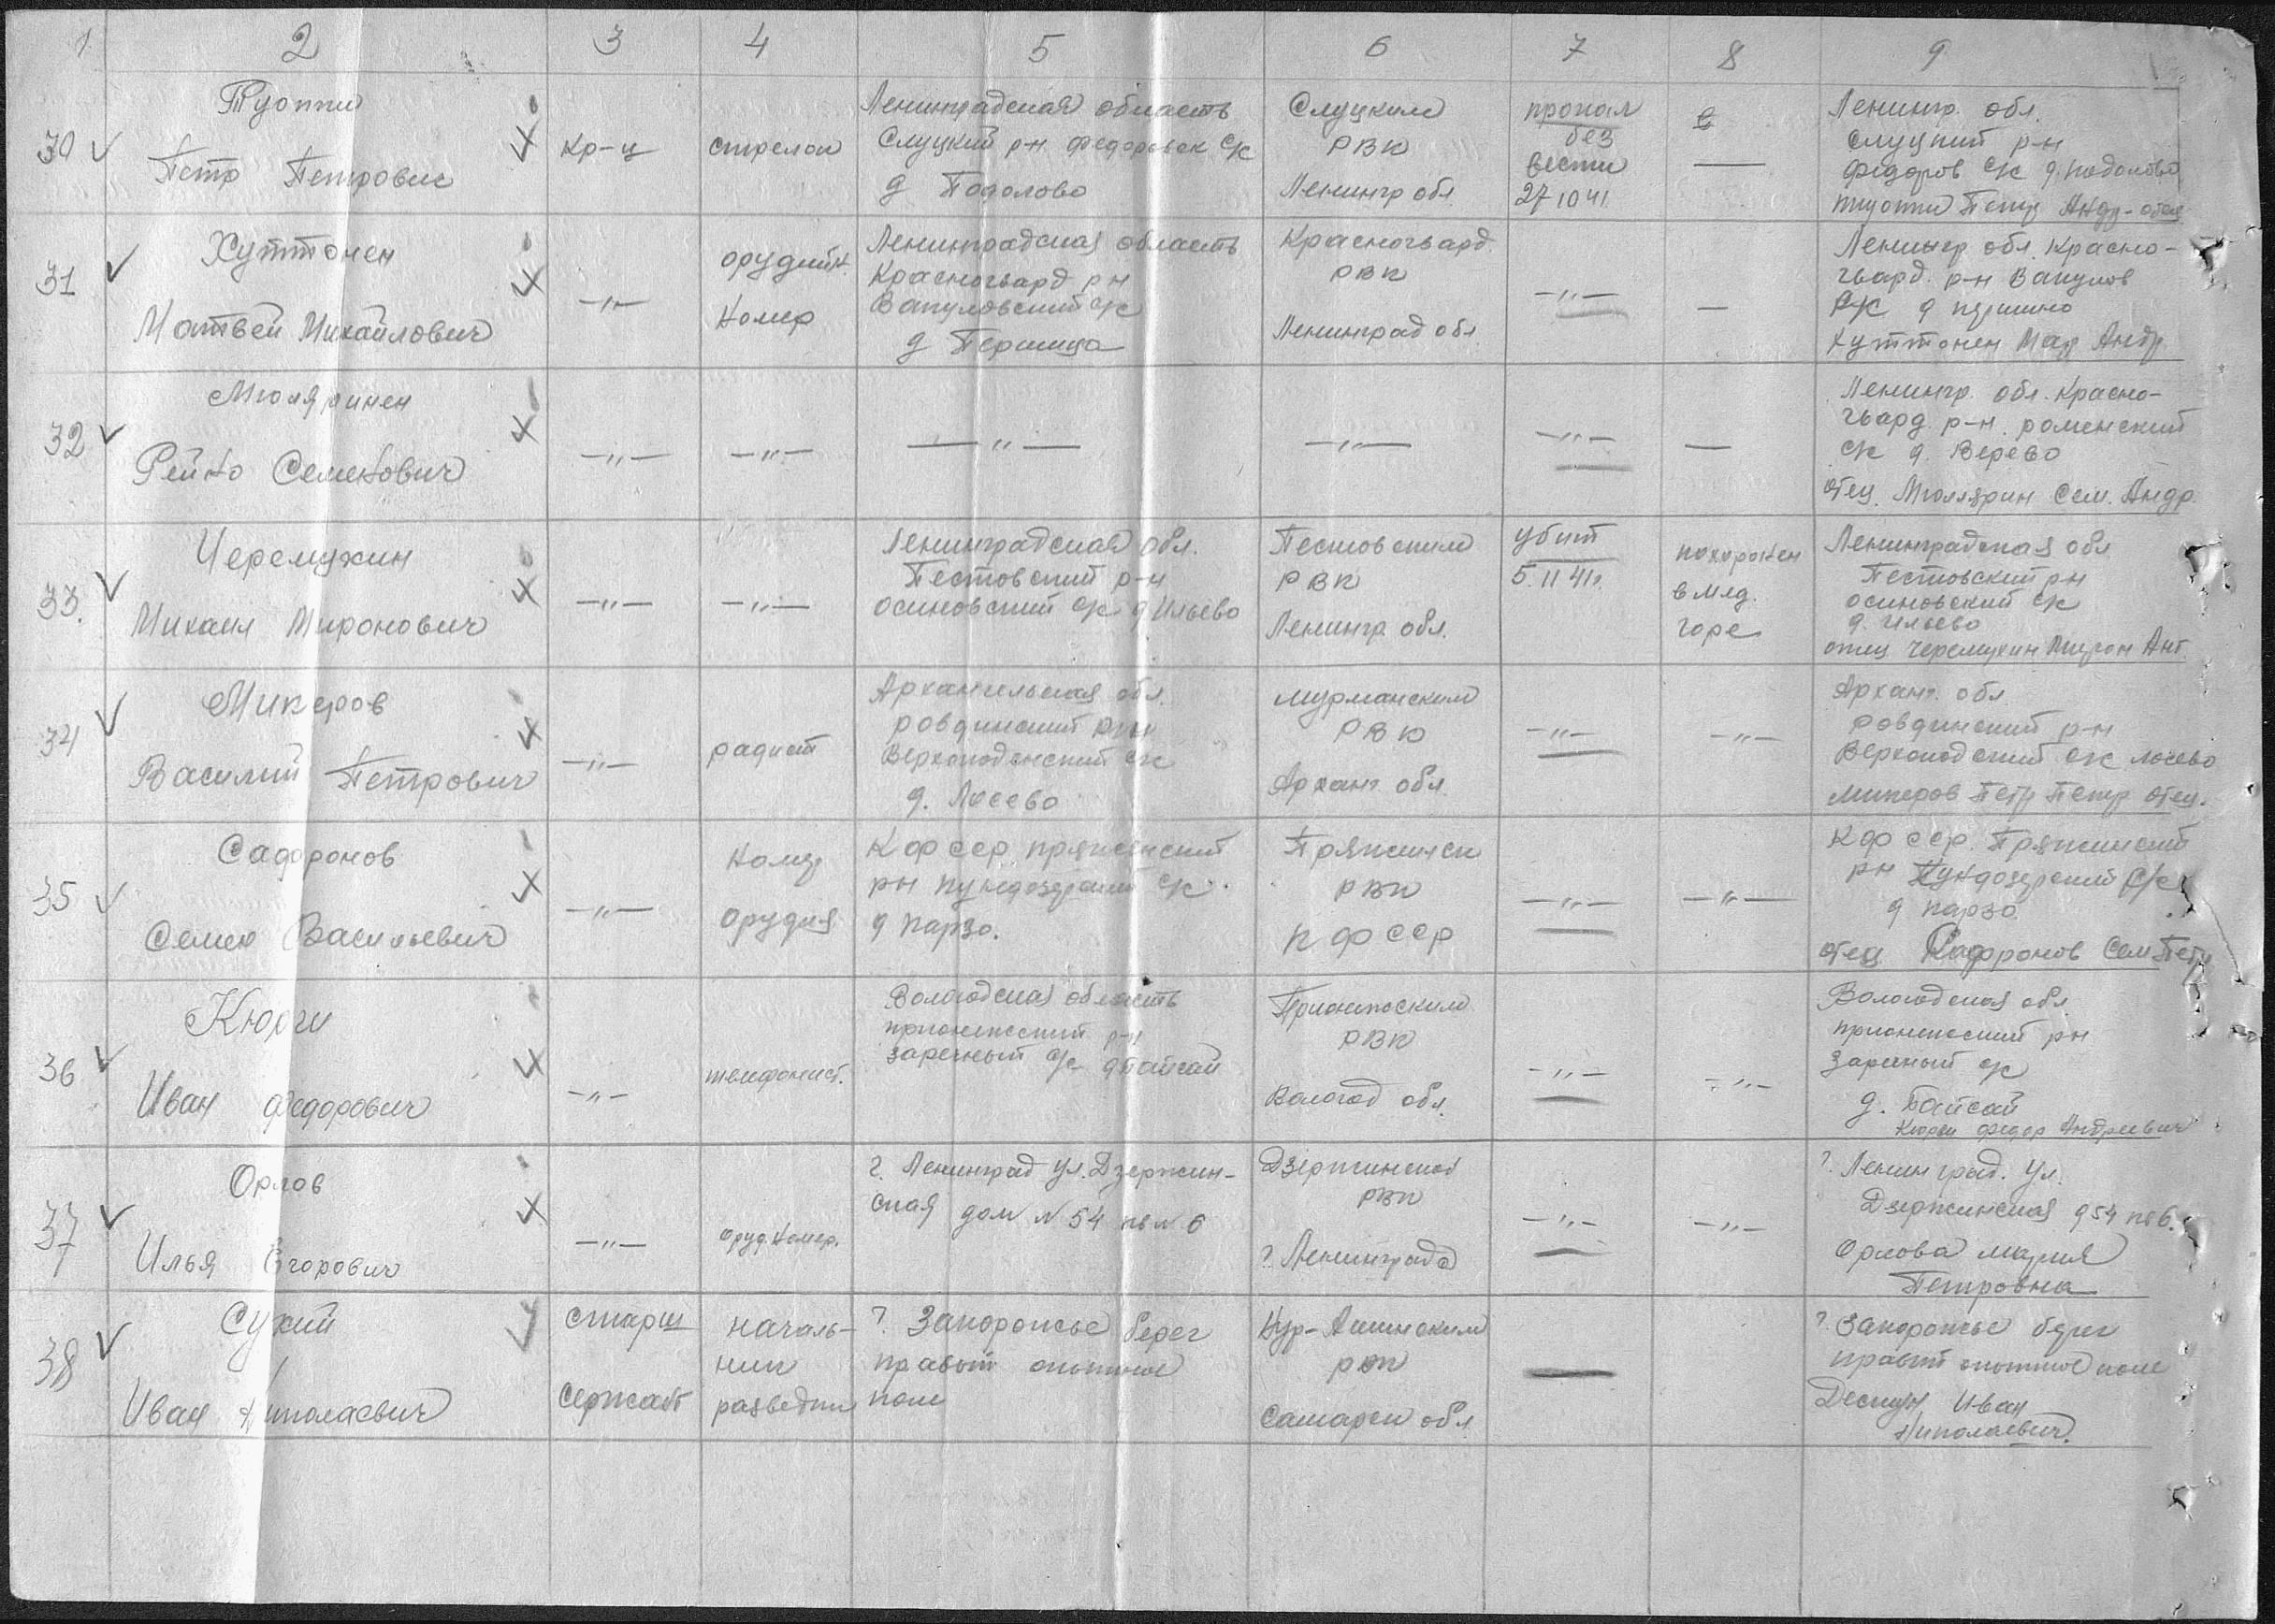 1. 2 3 4 5 6 7 8 9
30
Туоппи
Петр Петрович
кр-ц
стрелок
Ленинградская область
Слуцкий р-н Федоровск с/с
д Подолово
Слуцким
РВК
Ленингр обл
пропал
без
вести
27 10 41
—
Ленингр. обл.
Слуцкий р-н
Федоров с/с д. подолово
туоппи Петр Андр-отец
31
Хуттонен
Матвей Михайлович
—"—
орудийн.
Номер
Ленинградская область
Красногвард р н
Вакуловский с/с
д Першица
Красногвард.
РВК
Ленинград обл
—"—
—
Ленингр обл. Красно-
гвард. р-н Вакулов
с/с д
Хуттонен Мая Андр
32
Мюляринен
Рейно Семенович
—"—
—"—
—"—
—"—
—"—
—
Ленингр. обл. Красно-
гвард. р-н. роменский
с/с д. Верево
отец. Сем. Андр.
33.
Черемухин
Михаил Миронович
—"—
—"—
Ленинградская обл.
Пестовский р-н
осиновский с/с д Ильево
Пестовским
РВК
Ленингр. обл.
убит
5. 11 41г.
похоронен
в мед.
горе
Ленинградская обл
Пестовский рн
осиновский с/с
д. Ильево
отец Черемухин Мирон Ант
34
Микеров
Василий Петрович
—"—
радист
Архангельская обл.
ровдинский р-н
Верхоподенский с/с
д. Лосево
Мурманским
РВК
Арханг обл.
—"—
—"—
Арханг. обл
ровдинский р-н
с/с лосево
микеров Петр Петр отец.
35
Сафронов
Семен Васильевич
—"—
Номер
орудия
К Ф ССР пряжинский
рн с/с.
д нарзо.
Пряжинск
РВК
К Ф ССР
—"—
—"—
К Ф ССР. Пряжинский
рн с/с
д нарзо
отец Сафронов Сем Петр
36
Кюрги
Иван Федорович
—"—
телефонист.
Вологодская область
прионежский р-н
заречный с/с д Пайсай
Прионежским
РВК
Вологод обл.
—"—
—"—
Вологодская обл
прионежский рн
Заречный с/с
д. Байсай
Кюрги Федор Андреевич
37
Орлов
Илья Егорович
—"—
оруд. Номер.
г. Ленинград ул. Дзержин-
ская дом № 54 кв № 6
Дзержинской
РВК
г. Ленинграда
—"—
—"—
г. Ленинград. ул.
Дзержинская д 54 кв 6.
Орлова Мария
Петровна
38
Сухий
Иван Николаевич
старш
сержант
началь-
ник
разведки
г. Запорожье берег
правый опытное
поле
РВК
Самарск обл
—
г. Запорожье берег
правый опытное поле
Иван
Николаевич.